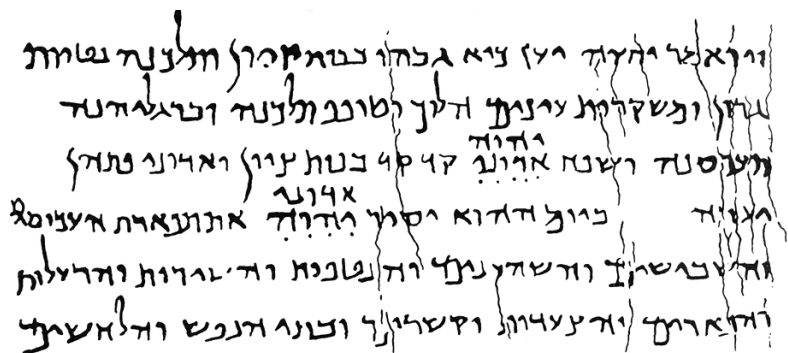 ויואמר יהוה יען כיא גבהו בנות ציון ותלכנה נטוות
גרון ומשקרות עינים הלוך וטופף תלכנה וברגליהנה
יהוה
תעכסנה ושפח אדוני קדקד בנות ציון ואדוני פתהן
אדוני
יערה ביום ההוא יסיר יהוה את תפארת העכיסים
והשבישים והשהרנים והנטפות והשירות והרעלות
והפארים והצעדות וקשרים ובתי הנפש והלחשים